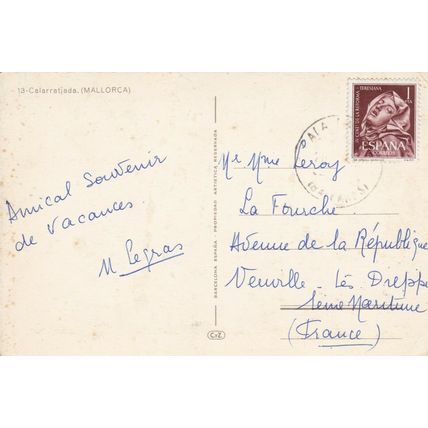 13-Calarratjada. (MALLORCA)
Amical Souvenir
de vacances.
M Legras
BARCELONA ESPAÑA - PROPIEDAD ARTISTICA RESERVADA
CYZ
1
PTA
IV CENT. DE LA REFORMA TERESIANA
ESPAÑA
CORREOS
Mr Mme Leroy
La Fourche
Avenue de la République
Neuville-lès Dieppe
Seine Maritime
(France)